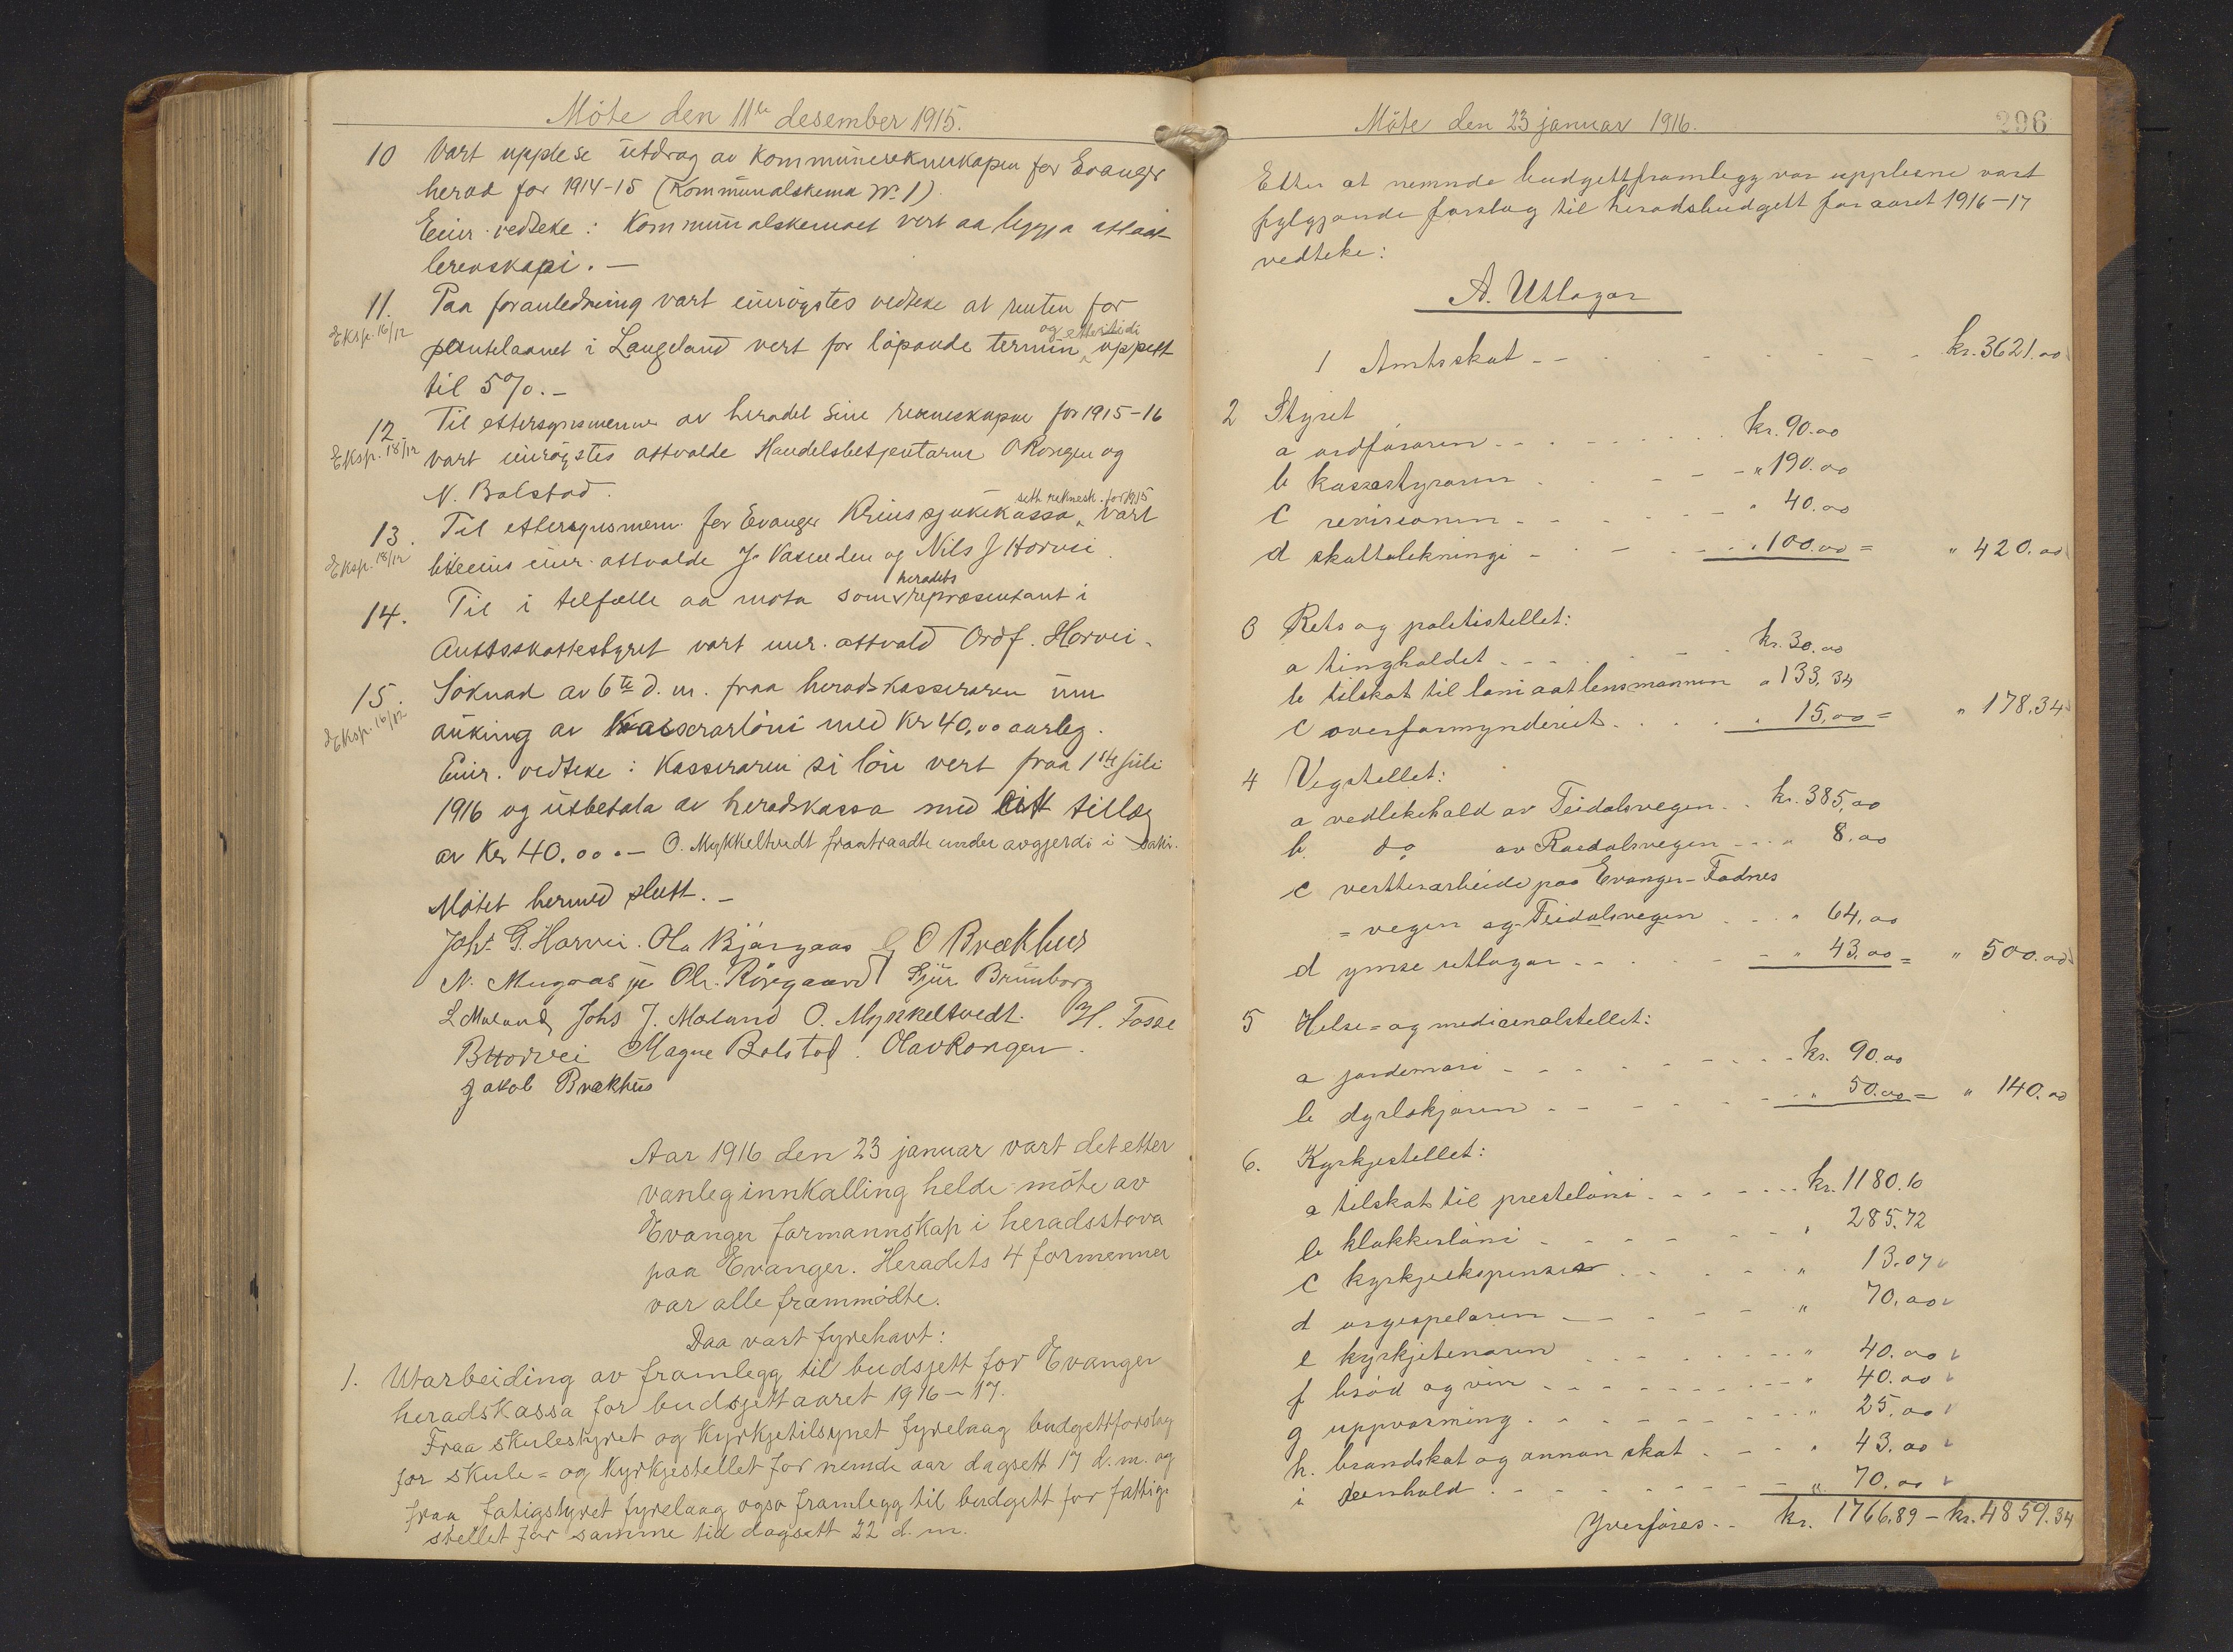 Möte den 11te desember 1915.
10 Vart upplese utdrag av kommunerekneskapen for Evanger
herad for 1914-15 (Kommunalskema Nr. 1).
Einr. vedteke: Kommunalskemaet vert aa leggja attaat
lerenskapi. —
11. Paa foranledning vart einrøystes vedteke at renten for
Eksp. 16/12
pantelaanet i Langeland vert for löpande termin og ettertidi uppsett
til 5%. —
12. Til ettersynsmenner av heradet sine rekneskapar for 1915-16
Eksp. 18/12
vart einröystes attvalde Handelsbetjentarne O Rongen og
N. Bolstad.
13. Til ettersynsmenn for Evanger Krinssjukekassa seth reknesk. for 1915 vart
Eksp. 18/12
einr. attvalde J. Vasenden og Nils J Horvei.
14. Til i telfelle aa möta som heradets repræsentant i
Amtsskattestyret vart einr. attvald Ordf. Horvei.
15. Söknad av 6te d.m. fraa heradskasseraren um
Eksp. 16/12
auking av kasserarlöni med kr 40,00 aarleg.
Einr. vedteke: Kasseraren si lön vert fraa 1ste juli
1916 og utbetala av heradskassa med eitt tillæg
av Kr 40.00. — O. Mykkeltvedt fraatraadte under avgjerdi i saki.
Mötet hermed slutt. —
Johs. G. Horvei. Ola Bjørgaas G O Brækhus
N. Mugaas Ol. Rörgaard Sjur Brunborg
L Moland Johs J. Moland O. Mykkeltvedt. H. Fosse
B Horvei Magne Bolstad. Olav Rongen.
Jakob Brækhus
Aar 1916 den 23 januar vart det etter
vanleg innkalling helde möte av
Evanger formannskap i heradsstova
paa Evanger. Heradets 4 formenner
var alle frammödte.
Daa vart fyrehavt:
1. Utarbeiding av framlegg til budsjett for Evanger
heradskassa for budsjettaaret 1916-17.
Fraa skulestyret og kyrkjetilsynet fyrelaag budgettforslag
for skule= og kyrkjestellet for nemde aar dagsett 17 d.m. og
fraa fatigstyret fyrelaag ogso framlegg til budgett for fattig-
stellet for samme tid dagsett 22 d.m.
Möte den 23 januar 1916.
296
Etter at nemnde budgettframlegg var upplesne vart
fylgjande forslag til heradsbudgett for aaret 1916-17
vedteke:
A. Utlagar
1 Amtsskat - - - kr. 3621.00
2 Styret
a ordföraren - - - kr. 90.00
b kassastyraren - - - " 190.00
c revisionen - - - " 40.00
d skattalikningi - - - " 100.00 = " 420.00
3 Rets og politistellet:
a tinghaldet - - - kr. 30.00
b tilskot til löni aat lensmannen " 133.34
c overformynderiet - - - " 15.00 = " 178.34
4 Vegstellet:
a vedlikehald av Teidalsvegen - - kr. 385,00
b do av Rasdalsvegen - - - " 8.00
c vertterarbeide paa Evanger-Fadnes
= vegen og Teidalsvegen - - - " 64,00
d ymse utlagar - - - " 43.00 = " 500.00
5 Helse= og medicinalstellet:
a jordemori - - - kr. 90.00
b dyrlækjaren - - - " 50.00 = " 140.00
6. Kyrkjestellet:
a tilskot til presteløni - - - kr. 1180.10
b klokkerløni - - - " 285.72
c kyrkjeekspenser - - - " 13.07
d orgespelaren - - - " 70.00
e kyrkjetenaren - - - " 40.00
f bröd og vin - - - " 40.00
g uppvarming - - - " 25.00
h. brandskat og annan skat - - - " 43.00
i reinhald - - - " 70.00
Yverföres - - kr. 1766.89 - kr. 4859.34